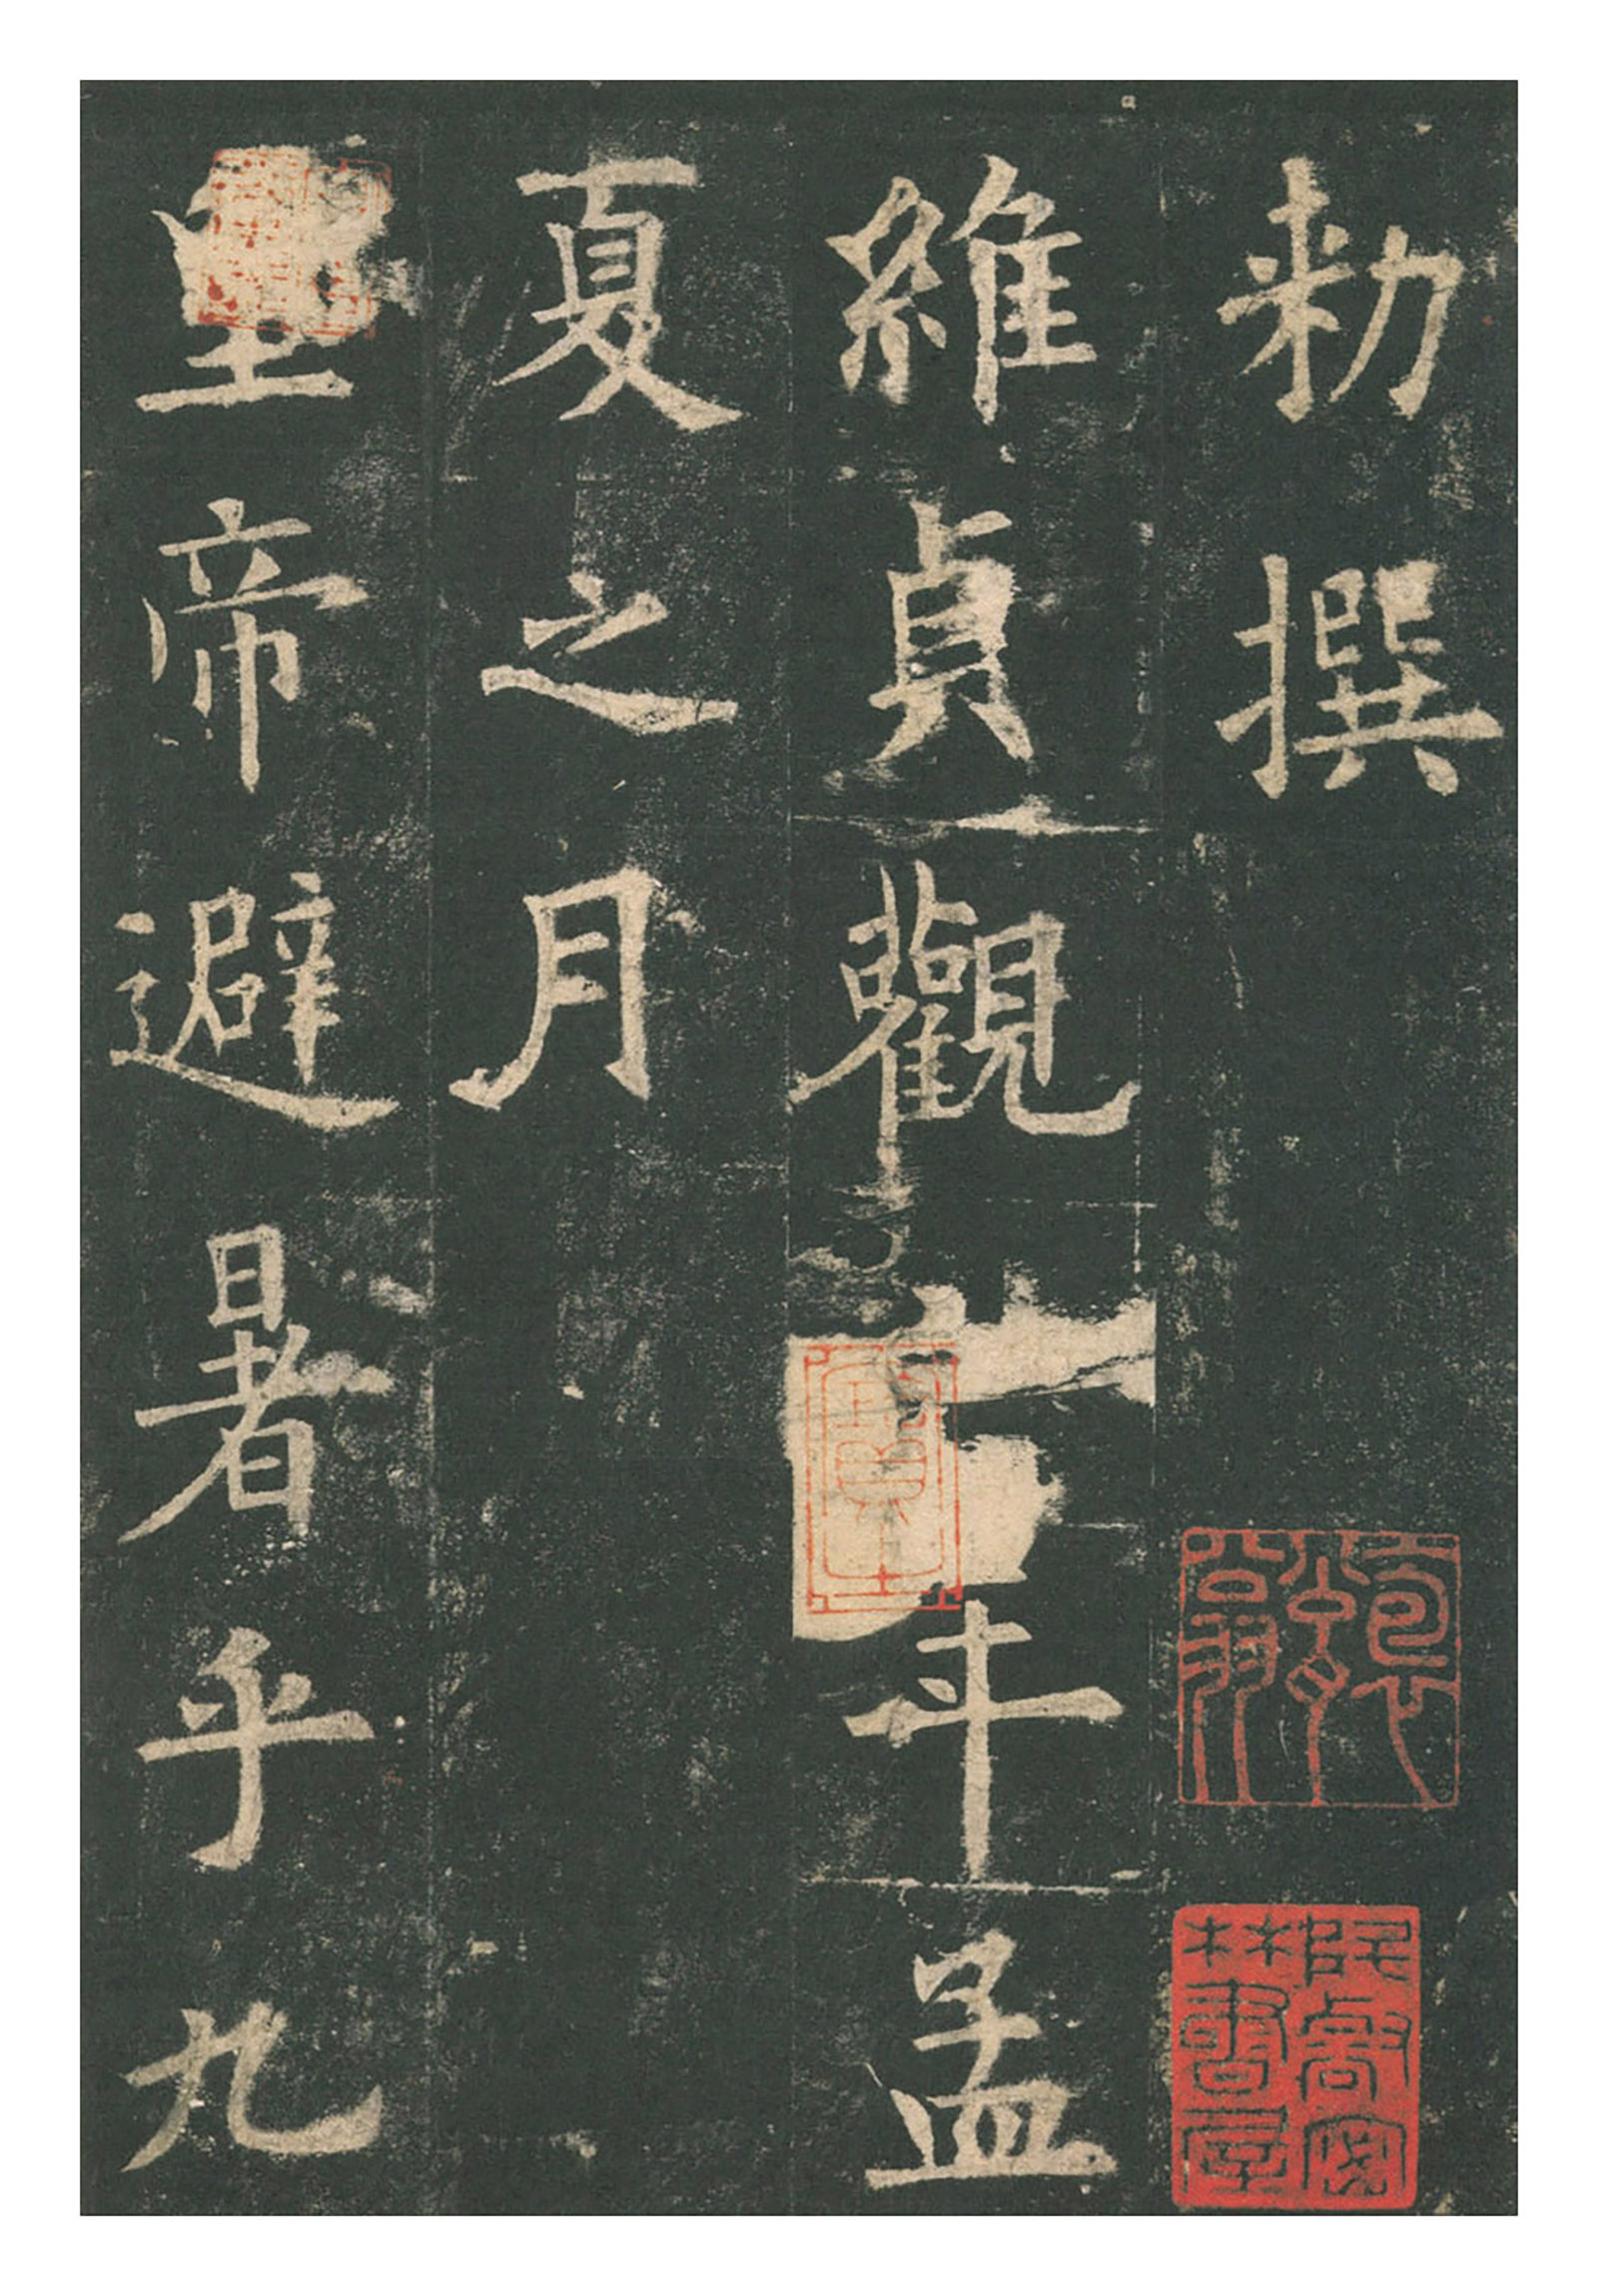 勑撰
維貞觀六年孟
夏之月
皇帝避暑乎九